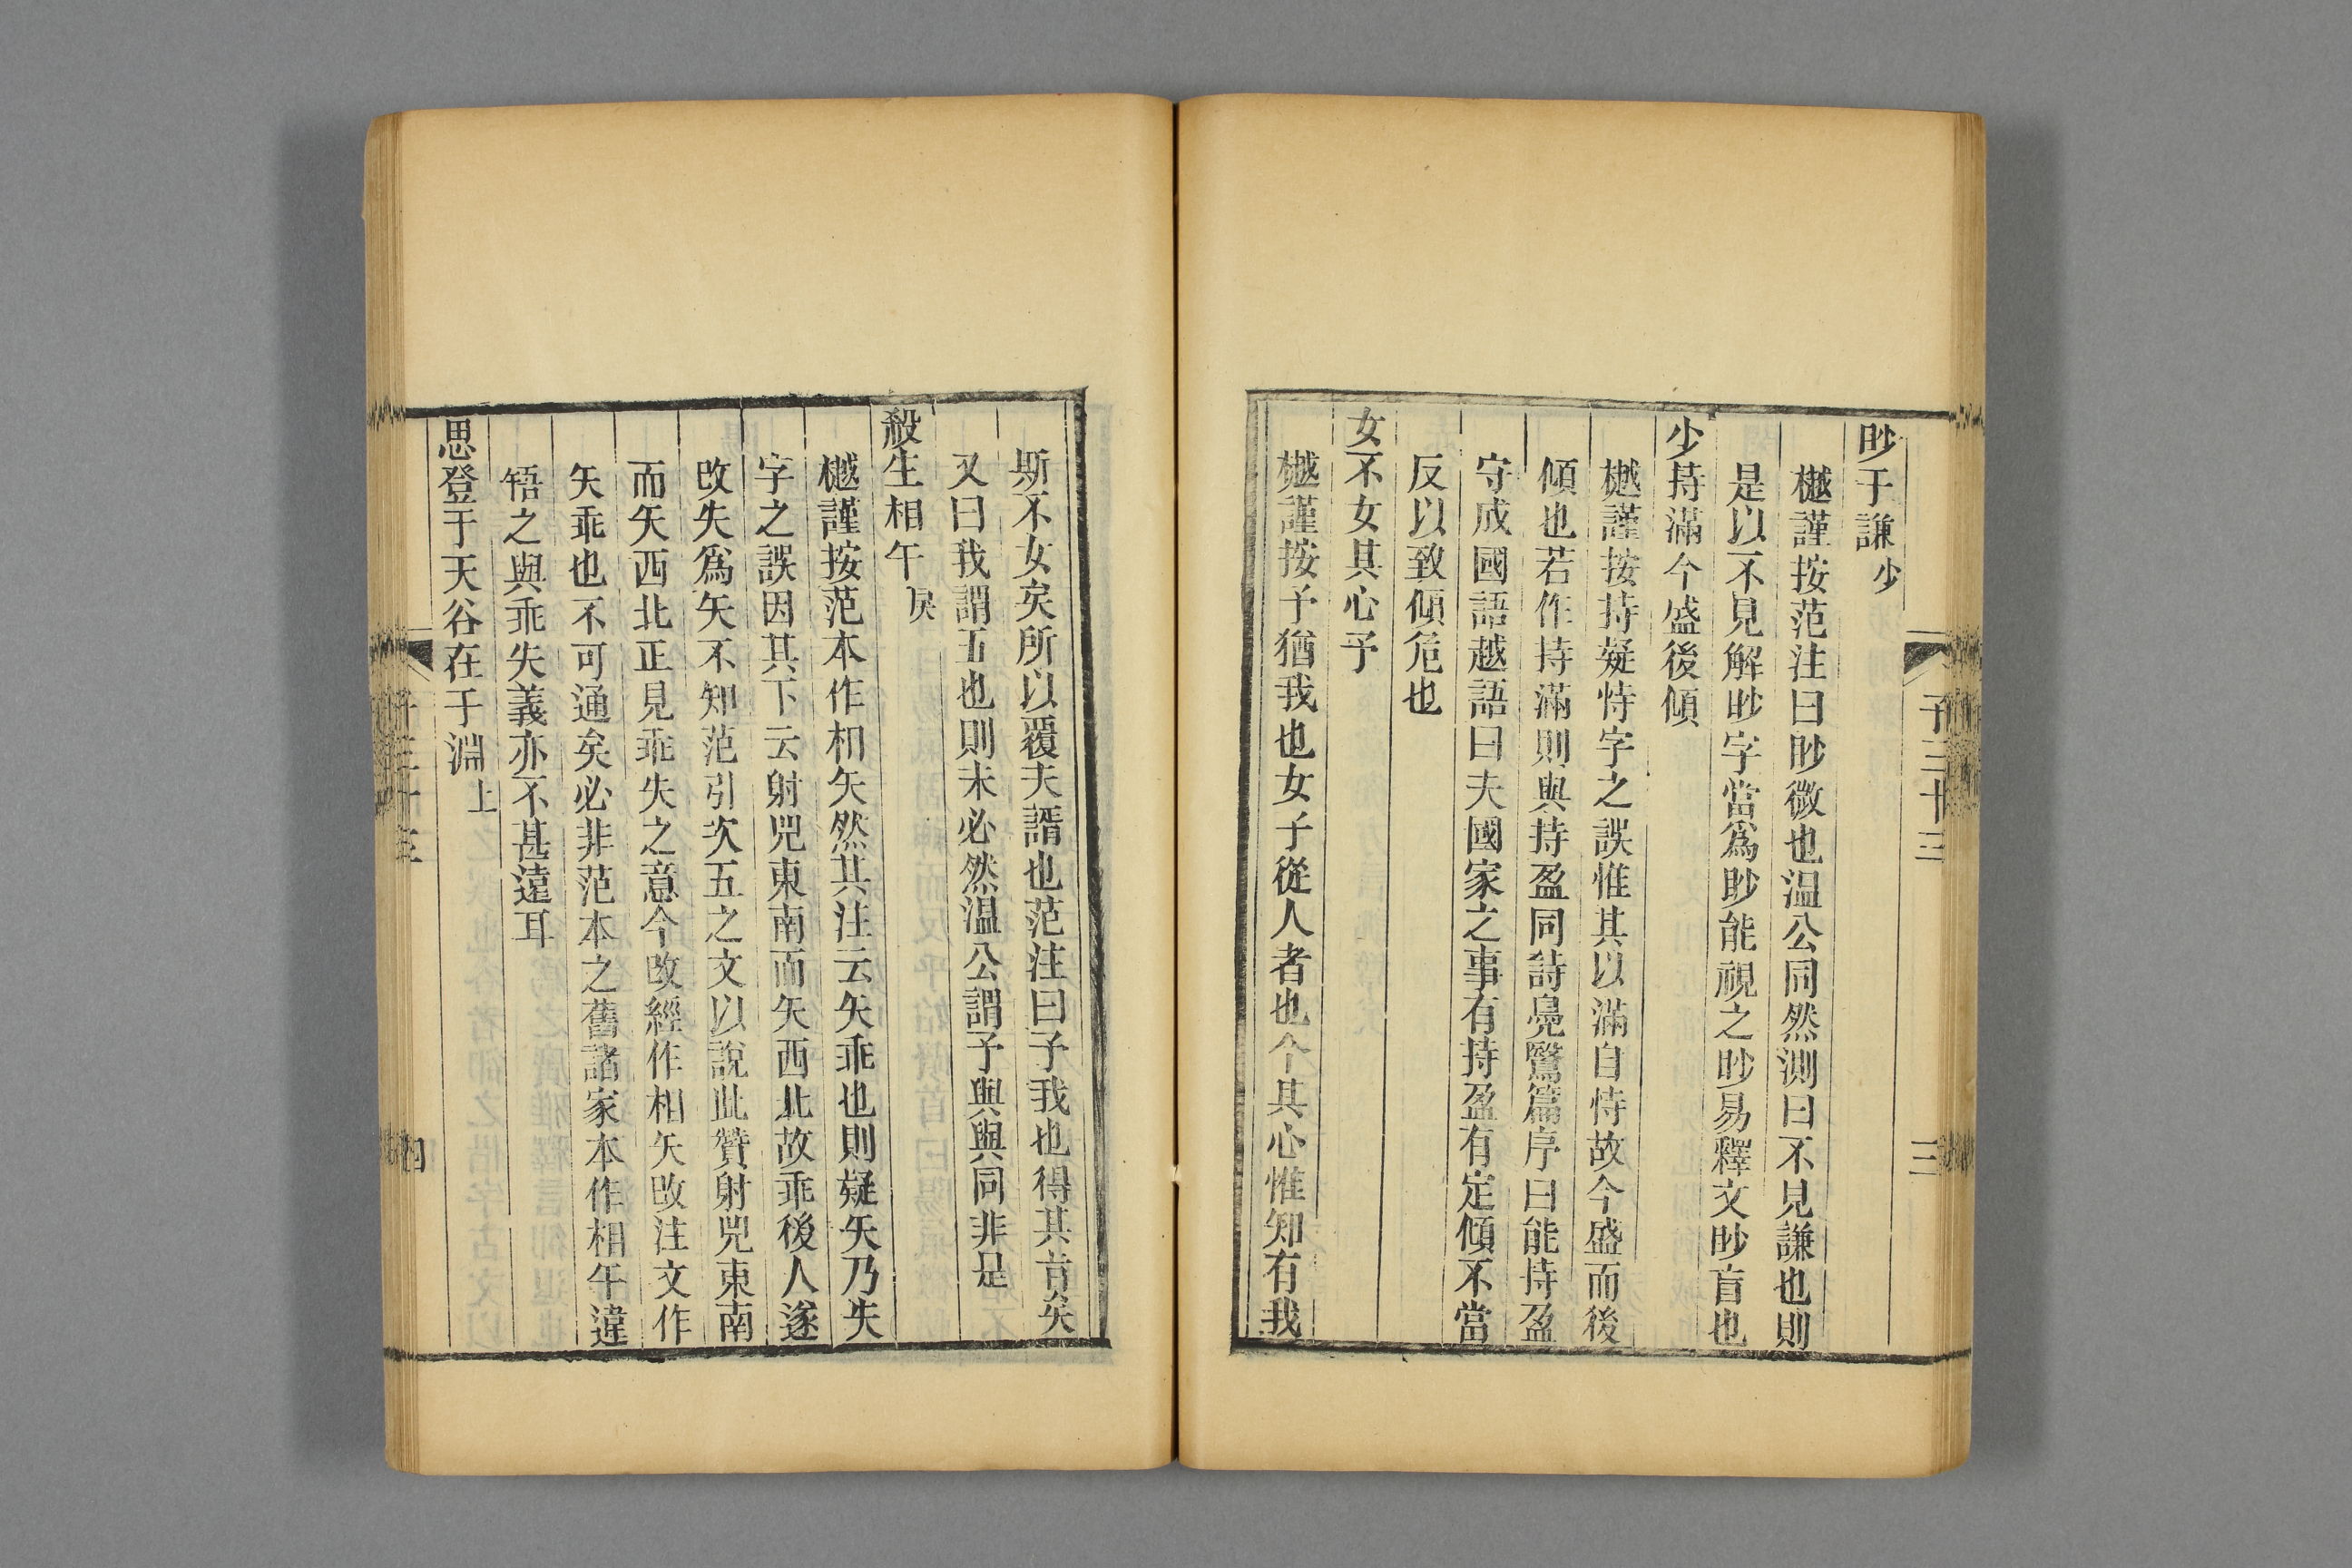 子三十三
三
眇于謙少
樾謹按范注曰眇微也温公同然測曰不見謙也則
是以不見解眇字當爲眇能視之眇易釋文眇盲也
少持滿今盛後傾
樾謹按持疑恃字之誤惟其以滿自恃故今盛而後
傾也若作持滿則與持盈同詩鳧鷖篇序曰能持盈
守成國語越語曰夫國家之事有持盈有定傾不當
反以致傾危也
女不女其心予
樾謹按予猶我也女子從人者也今其心惟知有我
斯不女矣所以覆夫謂也范注曰予我也得其旨矣
又曰我謂五也則未必然温公謂予與與同非是
殺生相午戾
樾謹按范本作相矢然其注云矢乖也則疑矢乃失
字之誤因其下云射兕東南而矢西北故乖後人遂
改失爲矢不知范引次五之文以說此贊射兕東南
而矢西北正見乖失之意今改經作相矢改注文作
矢乖也不可通矣必非范本之舊諸家本作相午違
啎之與乖失義亦不甚遠耳
思登于天谷在于淵上
子三十三
四